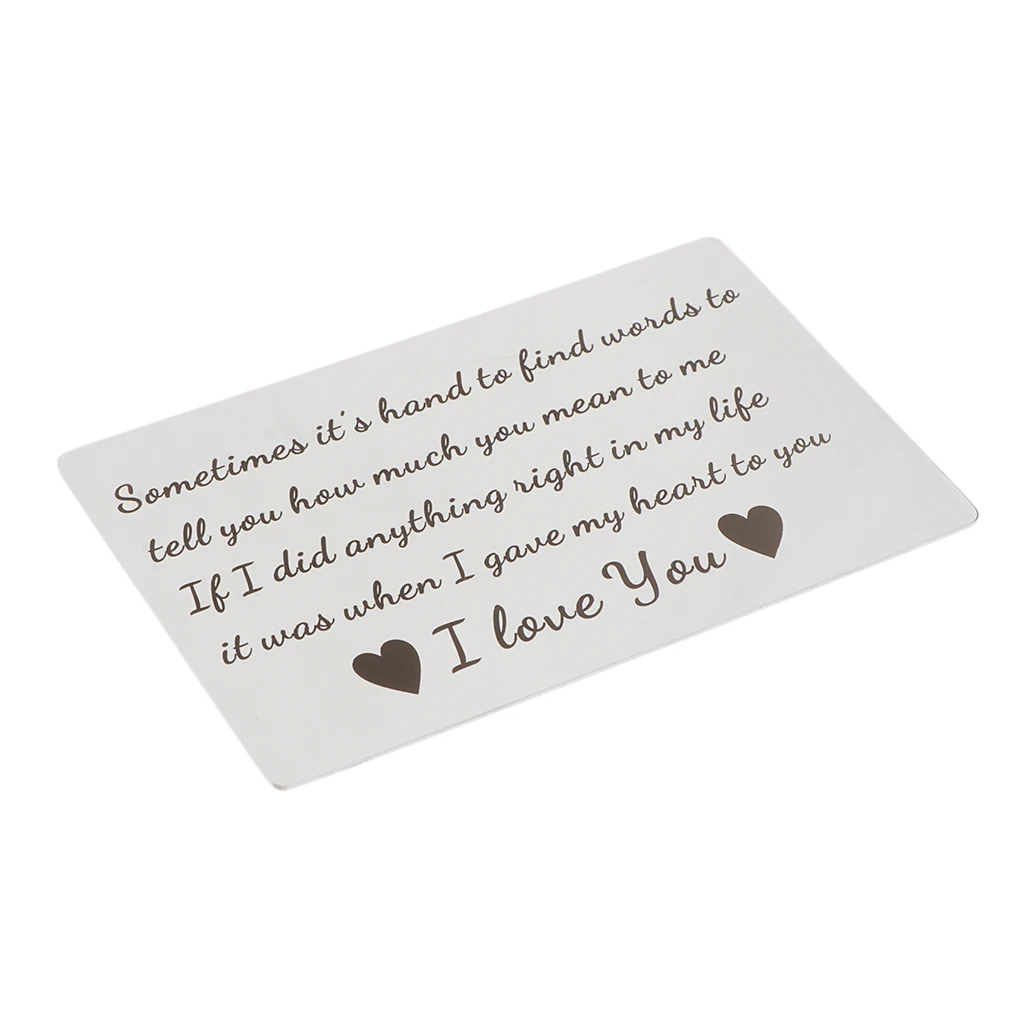 Sometimes it's hand to find words to
tell you how much you mean to me
If I did anything right in my life
it was when I gave my heart to you
I love You